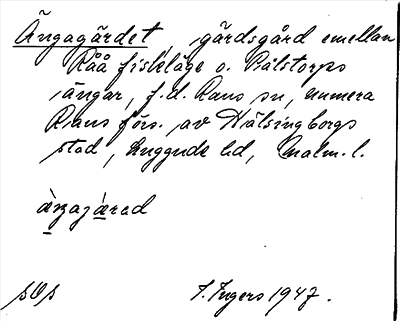 Ängagärdet, gärdsgård emellan
Råå fiskläge o. Pålstorps
ängar, f.d. Raus sn, numera
Raus förs. av Hälsingborgs
stad, Luggude hd, Malm. l.
sOs I. Ingers 1947.